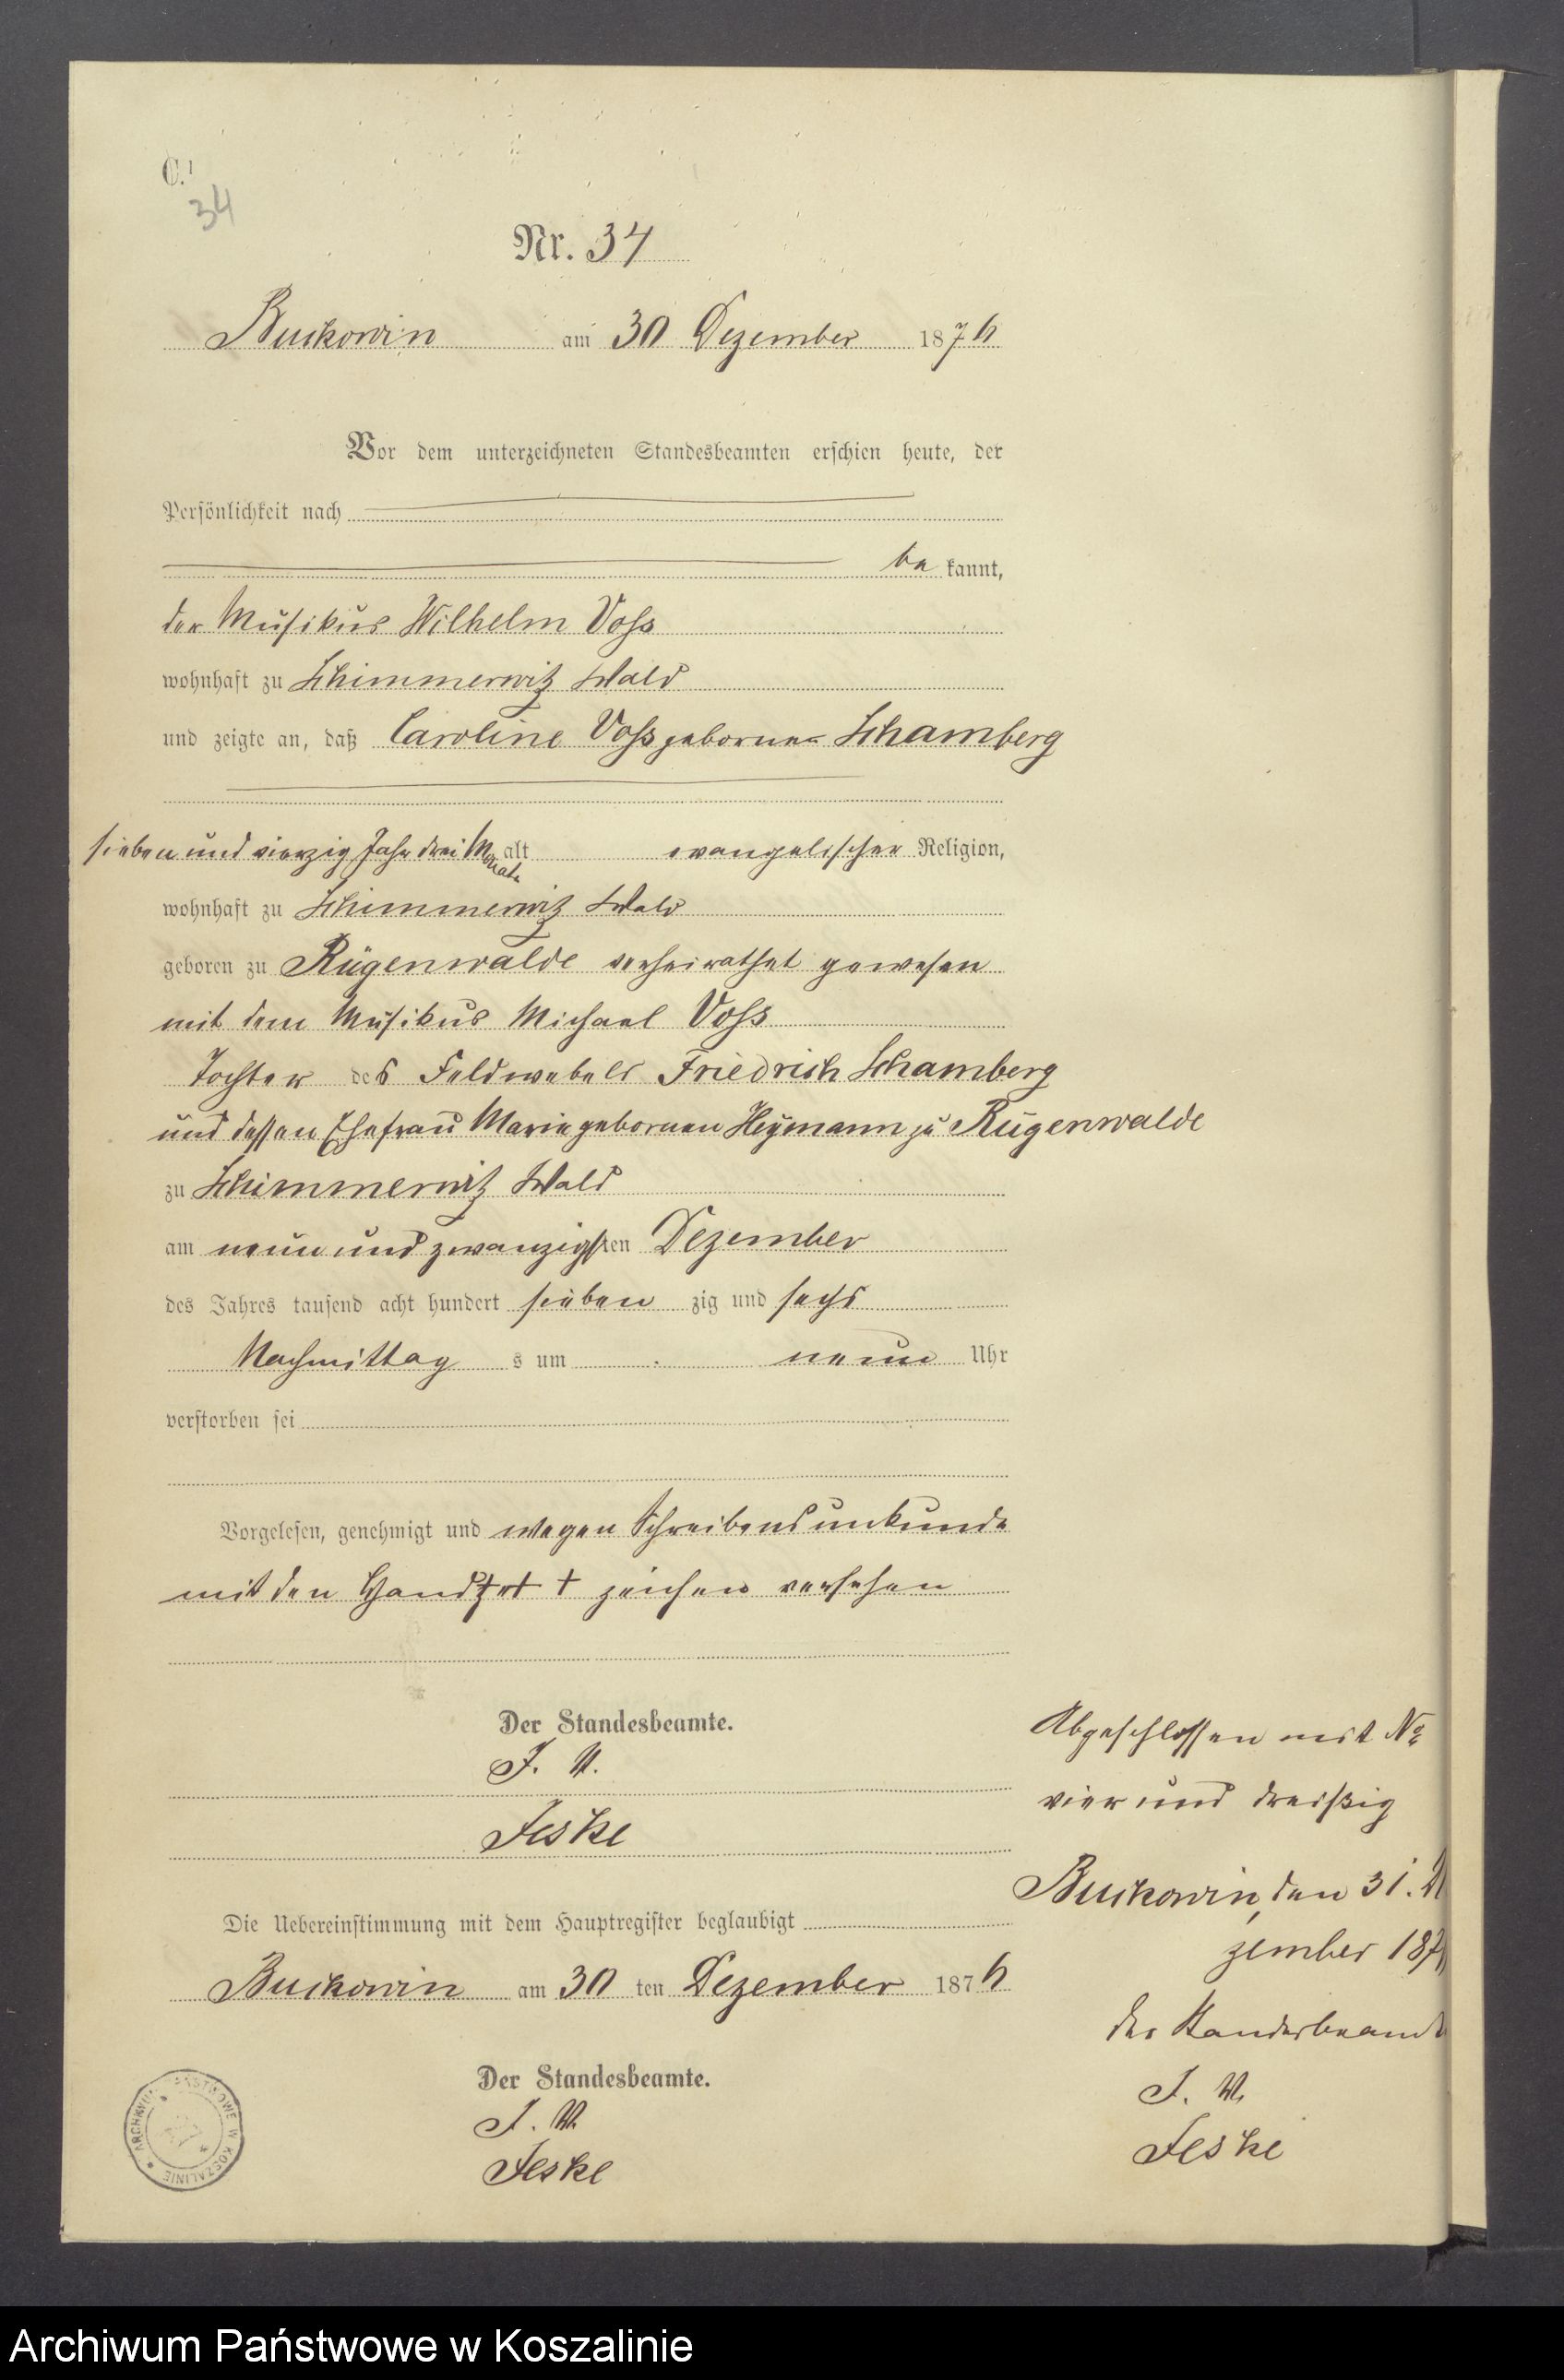 C.
34
Nr. 34
Buckowin am 30 Dezember 1876
Vor dem unterzeichneten Standesbeamten erschien heute, der
Persönlichkeit nach
be kannt,
der Musikus Wilhelm Voss
wohnhaft zu Schimmerwitz Wald
und zeigte an, daß Caroline Voss geborne Schamberg
sieben und vierzig Jahr drei Monate alt evangelischer Religion,
wohnhaft zu Schimmerwitz Wald
geboren zu Rügenwalde verheirathet gewesen
mit dem Musikus Michael Voss
Tochter des Feldwebels Friedrich Schamberg
und dessen Ehefrau Marie gebornen Heymann zu Rügenwalde
zu Schimmerwitz Wald
am neun und zwanzigsten Dezember
des Jahres tausend acht hundert sieben zig und sechs
Nachmittag s um neun Uhr
verstorben sei
Vorgelesen, genehmigt und wegen Schreibensunkunde
mit den Hand + + + zeichen versehen
Der Standesbeamte.
J. V.
Jeske
Abgeschlossen mit No
vier und dreißig
Buckowin, den 31. De
zember 187
Der Standesbeamt
J. V.
Jeske
Die Uebereinstimmung mit dem Hauptregister beglaubigt
Buckowin am 30 ten Dezember 1876
Der Standesbeamte.
J. V.
Jeske
ARCHIWUM PAŃSTWOWE W KOSZALINIE
Archiwum Państwowe w Koszalinie